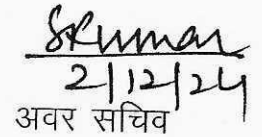 SKumar
2/12/24
अवर सचिव